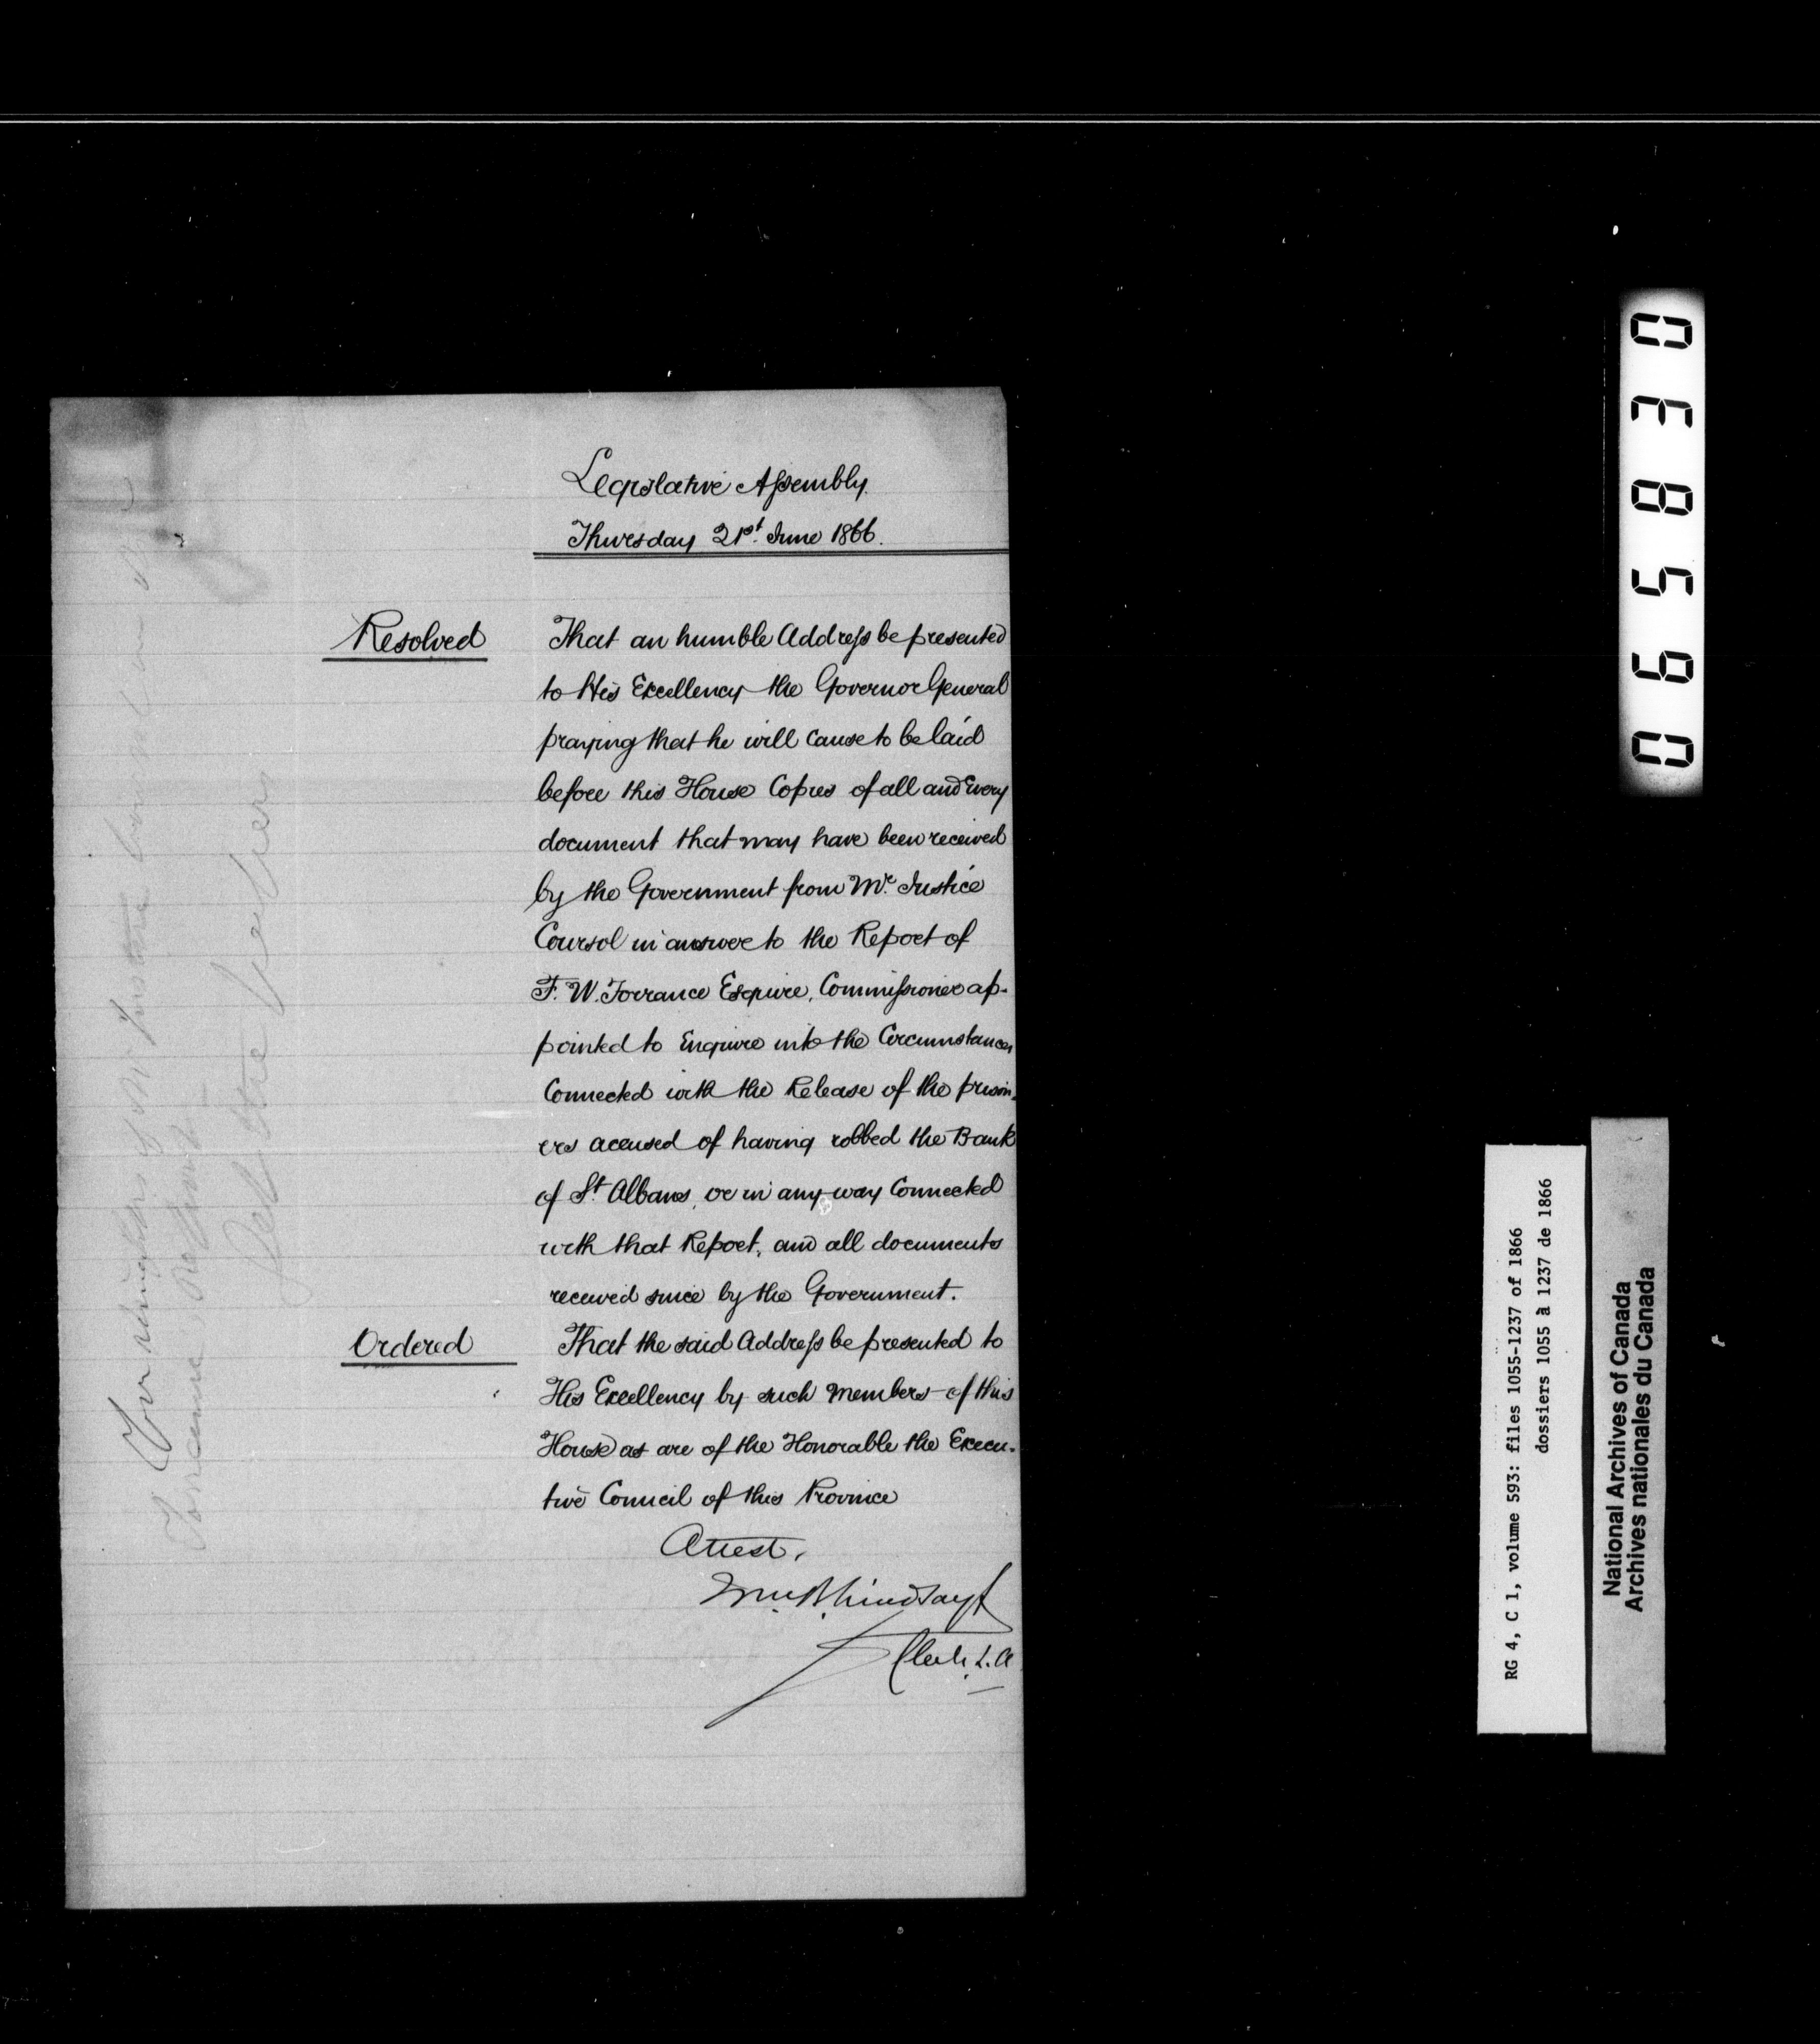 Legislative Assembly.
Thursday 21st. June 1866.
Resolved That an humble Address be presented
to His Excellency the Governor General
praying that he will Cause to be laid
before this House Copies of all and Every
document that may have been received
by the Government from Mr. Justice
Coursol in answer to the Report of
F. W. Torrance Esquire, Commissioner ap-
pointed to Enquire into the Circumstances
Connected with the Release of the prison-
ers accused of having robbed the Bank
of St. Albans, or in any way Connected
with that Report, and all documents
received since by the Government.
Ordered That the said Address be presented to
His Excellency by such Members of this
House as are of the Honorable the Execu-
tive Council of this Province
Attest,
Wm. B. Lindsay
Clerk. L. A
065830
RG 4, C 1, volume 593: files 1055-1237 of 1866
dossiers 1055 à 1237 de 1866
National Archives of Canada
Archives nationales du Canada